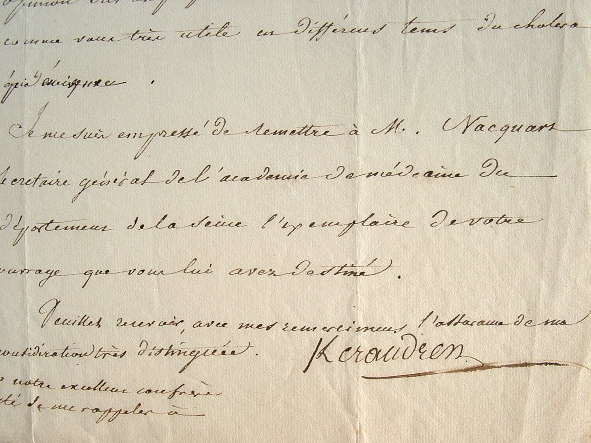 opinion
comme vous très utile en différens tems du cholera
épidémique.
Je me suis empressé de remettre à M. Nacquart
secretaire général de l'academie de médecine du
département de la Seine l'exemplaire de votre
ouvrage que vous lui avez destiné.
Veuillez recevoir, avec mes remercimens, l'assurance de ma
considération très distinguée. Keraudren
notre excellent confrère
de me rappeler à